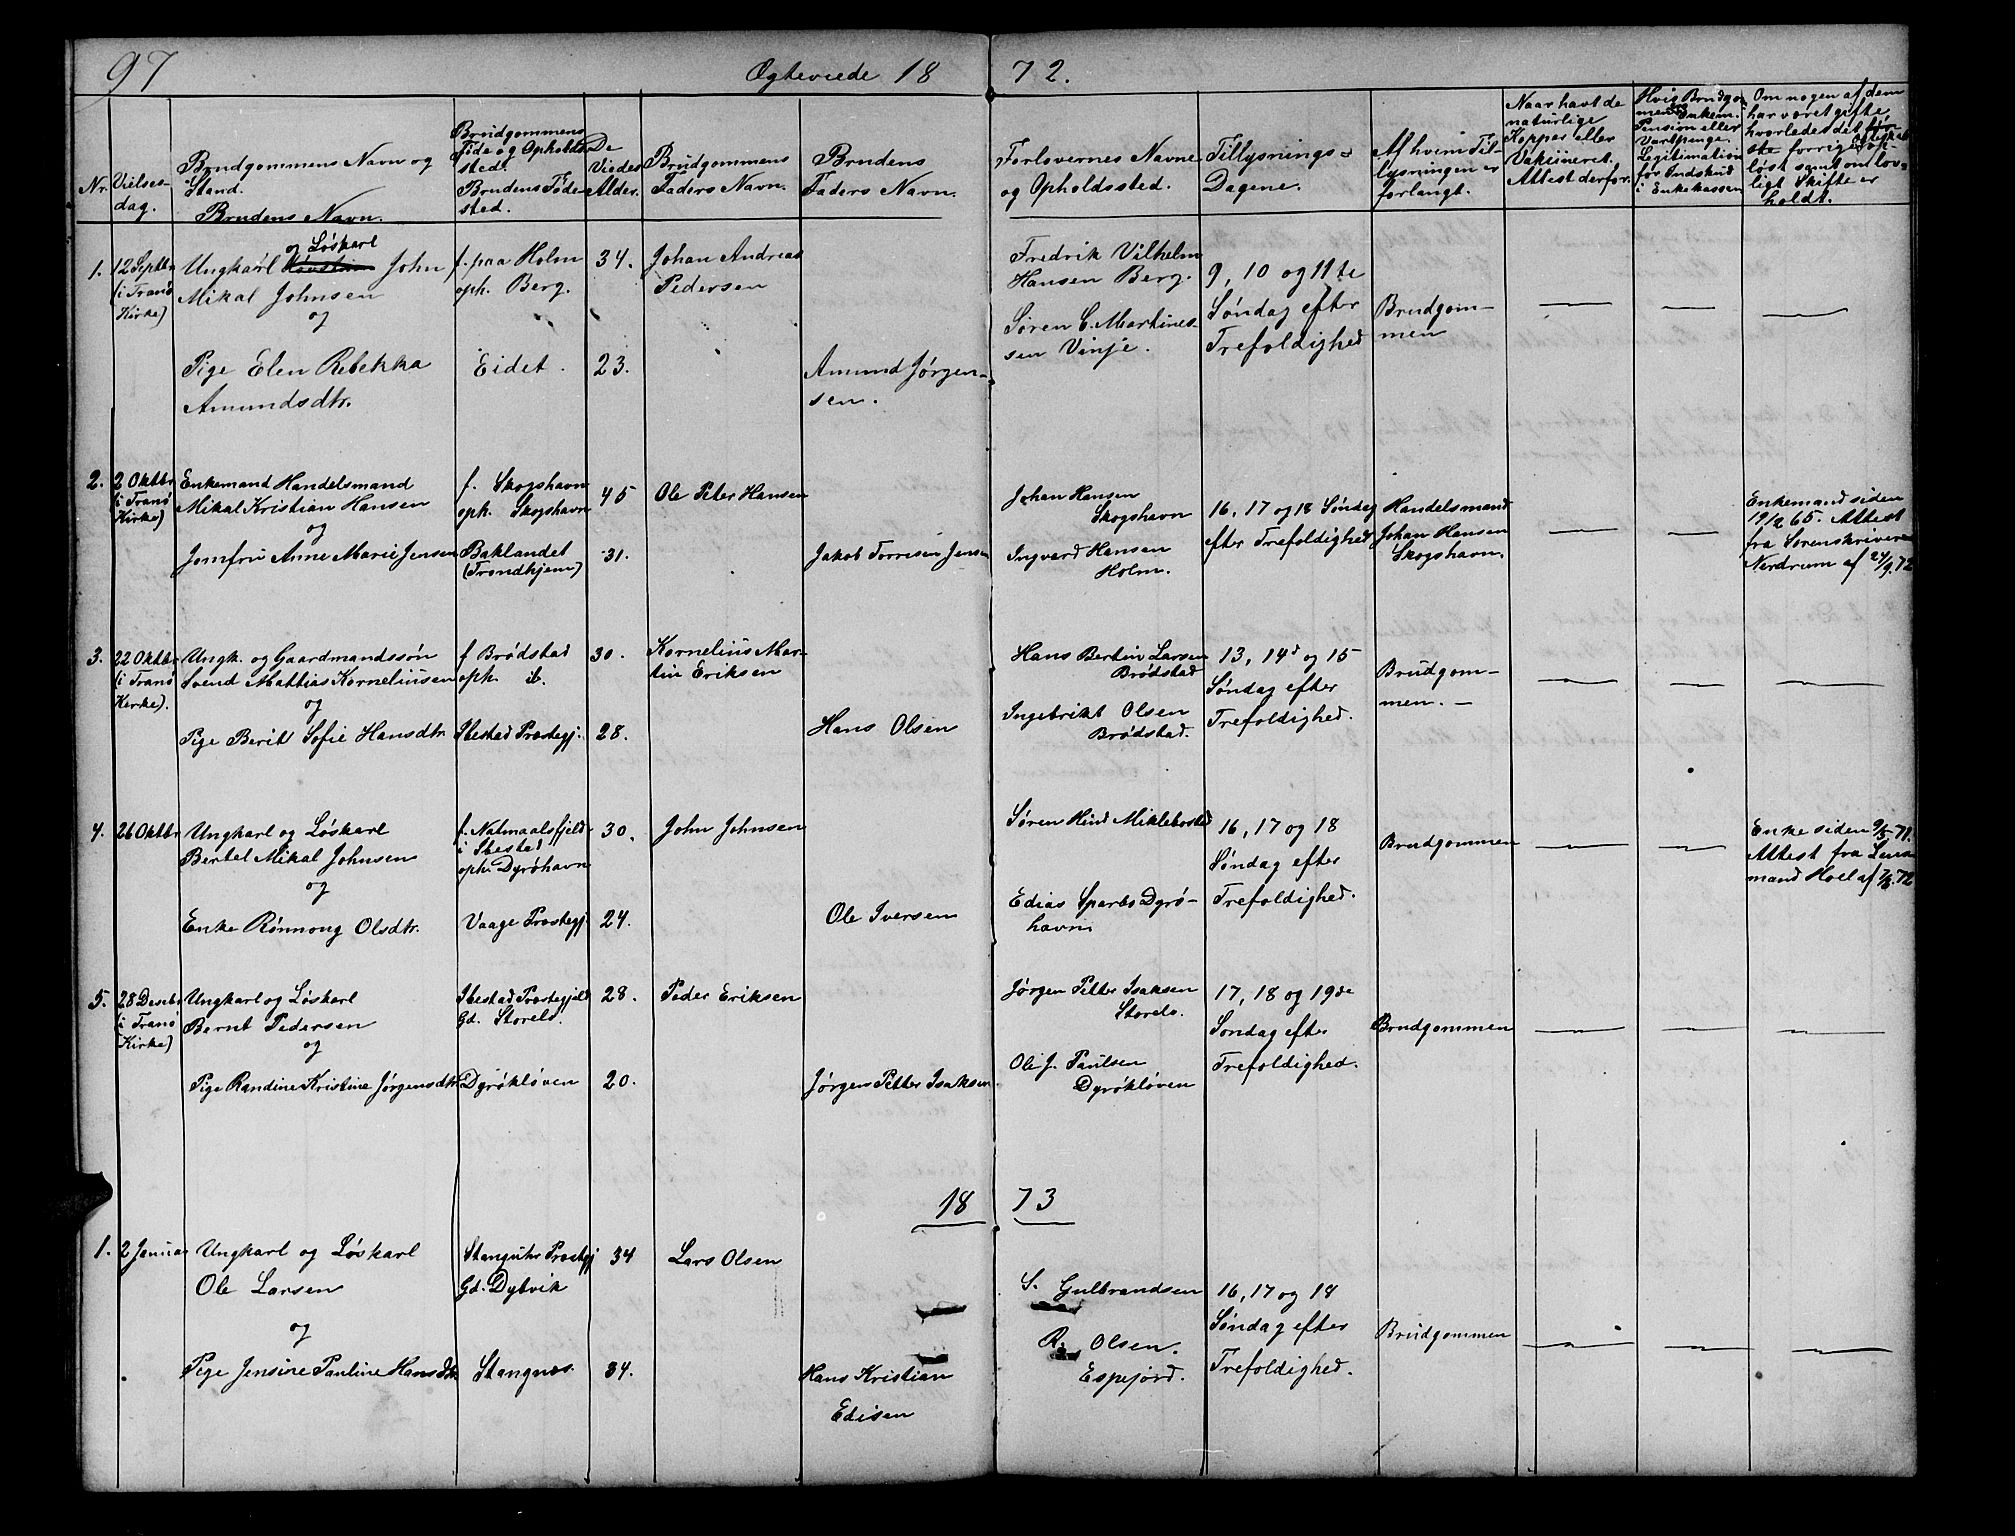 97
Ægteviede 18 72.
Nr.
Vielses-
dag.
Brudgommens Navn og
Stand.
Brudens Navn.
Brudgommens
Føde og Opholds-
sted.
Brudens Føde-
sted.
De
Viedes
Alder.
Brudgommens
Faders Navn.
Brudens
Faders Navn.
Forlovernes Navne
og Opholdssted.
Tillysnings-
Dagene.
Af hvem Til-
lysningen er
forlangt.
Naar havt de
naturlige
Kopper eller
Vakcineret.
Attest derfor.
Hvis Brudgom-
men er Enkem.
Pension eller
Vartpenge.
Legitimation
for Indskud
i Enkekassen
Om nogen af dem
har været gifte,
hvorledes det
forrige Ægteskab op-
løst samt om lov-
ligt Skifte er
holdt.
1.
12 Septbr
(i Tranø
Kirke)
og Løskarl
Ungkarl John
Mikal Johnsen
og
Pige Elen Rebekka
Amundsdtr.
f. paa Holm
oph. Berg.
Eidet.
34.
23.
Johan Andreas
Pedersen
Amund Jørgen-
sen.
Fredrik Vilhelm
Hansen Berg.
Søren C. Martines-
sen Vinje.
9, 10 og 11te
Søndag efter
Trefoldighed
Brudgom-
men
2.
2 Oktbr
(i Tranø
Kirke)
Enkemand Handelsmand
Mikal Kristian Hansen
og
Jomfru Anne Marie Jensen
f. Skogshavn
oph. Skogshavn
Baklandet
(Trondhjem)
45
31.
Ole Peter Hansen
Jakob Torresen Jensen
Johan Hansen
Skogshavn
Ingvard Hansen
Holm.
16, 17 og 18 Søndag
efter Trefoldighed
Handelsmand
Johan Hansen
Skogshavn.
Enkemand siden
19/2 65. Attest
fra Sorenskriver
Nordrum af 24/9.72
3.
22 Oktbr
(i Tranø
Kirke).
Ungk. og Gaardmandssøn
Svend Mattias Korneliusen
og
Pige Berit Sofie Hansdtr
f Brødstad
oph. ib.
Ibestad Præstegj.
30.
28.
Kornelius Mar-
tin Eriksen
Hans Olsen
Hans Bertin Larsen
Brødstad
Ingebrikt Olsen
Brødstad.
13, 14d og 15
Søndag efter
Trefoldighed.
Brudgom-
men.
4.
26 Oktbr
Ungkarl og Løskarl
Bertel Mikal Johnsen
og
Enke Rønnong Olsdtr.
f. Natmaalsfjeld
i Ibestad
oph. Dyrøhavn
Vaage Præstegj
30.
24.
John Johnsen
Ole Iversen
Søren Hind Miklebostad
Edias Sparbo Dyrø-
havn
16, 17 og 18
Søndag efter
Trefoldighed.
Brudgommen
Enke siden 9/5 71.
Attest fra Lens-
mand Hoel af 7/8.72
5.
28 Decbr
(i Tranø
Kirke)
Ungkarl og Løskarl
Bernt Pedersen
og
Pige Randine Kristine Jørgensdtr
Ibestad Præstegjeld
Gd. Storelv.
Dyrøkløven
28.
20.
Peder Eriksen
Jørgen Petter Isaksen
Jørgen Petter Isaksen
Storelv.
Ole J. Paulsen
Dyrøkløven
17, 18 og 19de
Søndag efter
Trefoldighed.
Brudgommen
18 73
1.
2 Januar
Ungkarl og Løskarl
Ole Larsen
og
Pige Jensine Pauline Hansdtr
Præstegj
Gd. Dybvik
Stangnes
34
34.
Lars Olsen
Hans Kristian
Edisen
S. Gulbrandsen
R. Olsen.
Espejord.
16, 17 og 18
Søndag efter
Trefoldighed.
Brudgommen